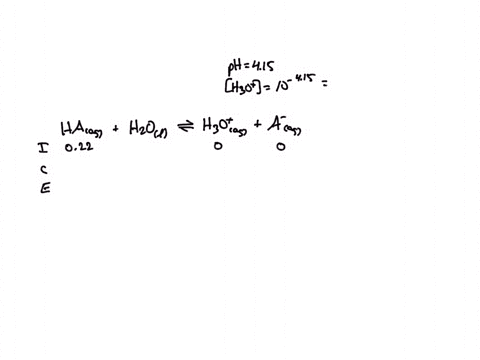 pH = 4.15
[H3O⁺] = 10⁻⁴·¹⁵ =
HA(aq) + H2O(l) ⇌ H3O⁺(aq) + A⁻(aq)
I 0.22 0 0
C
E